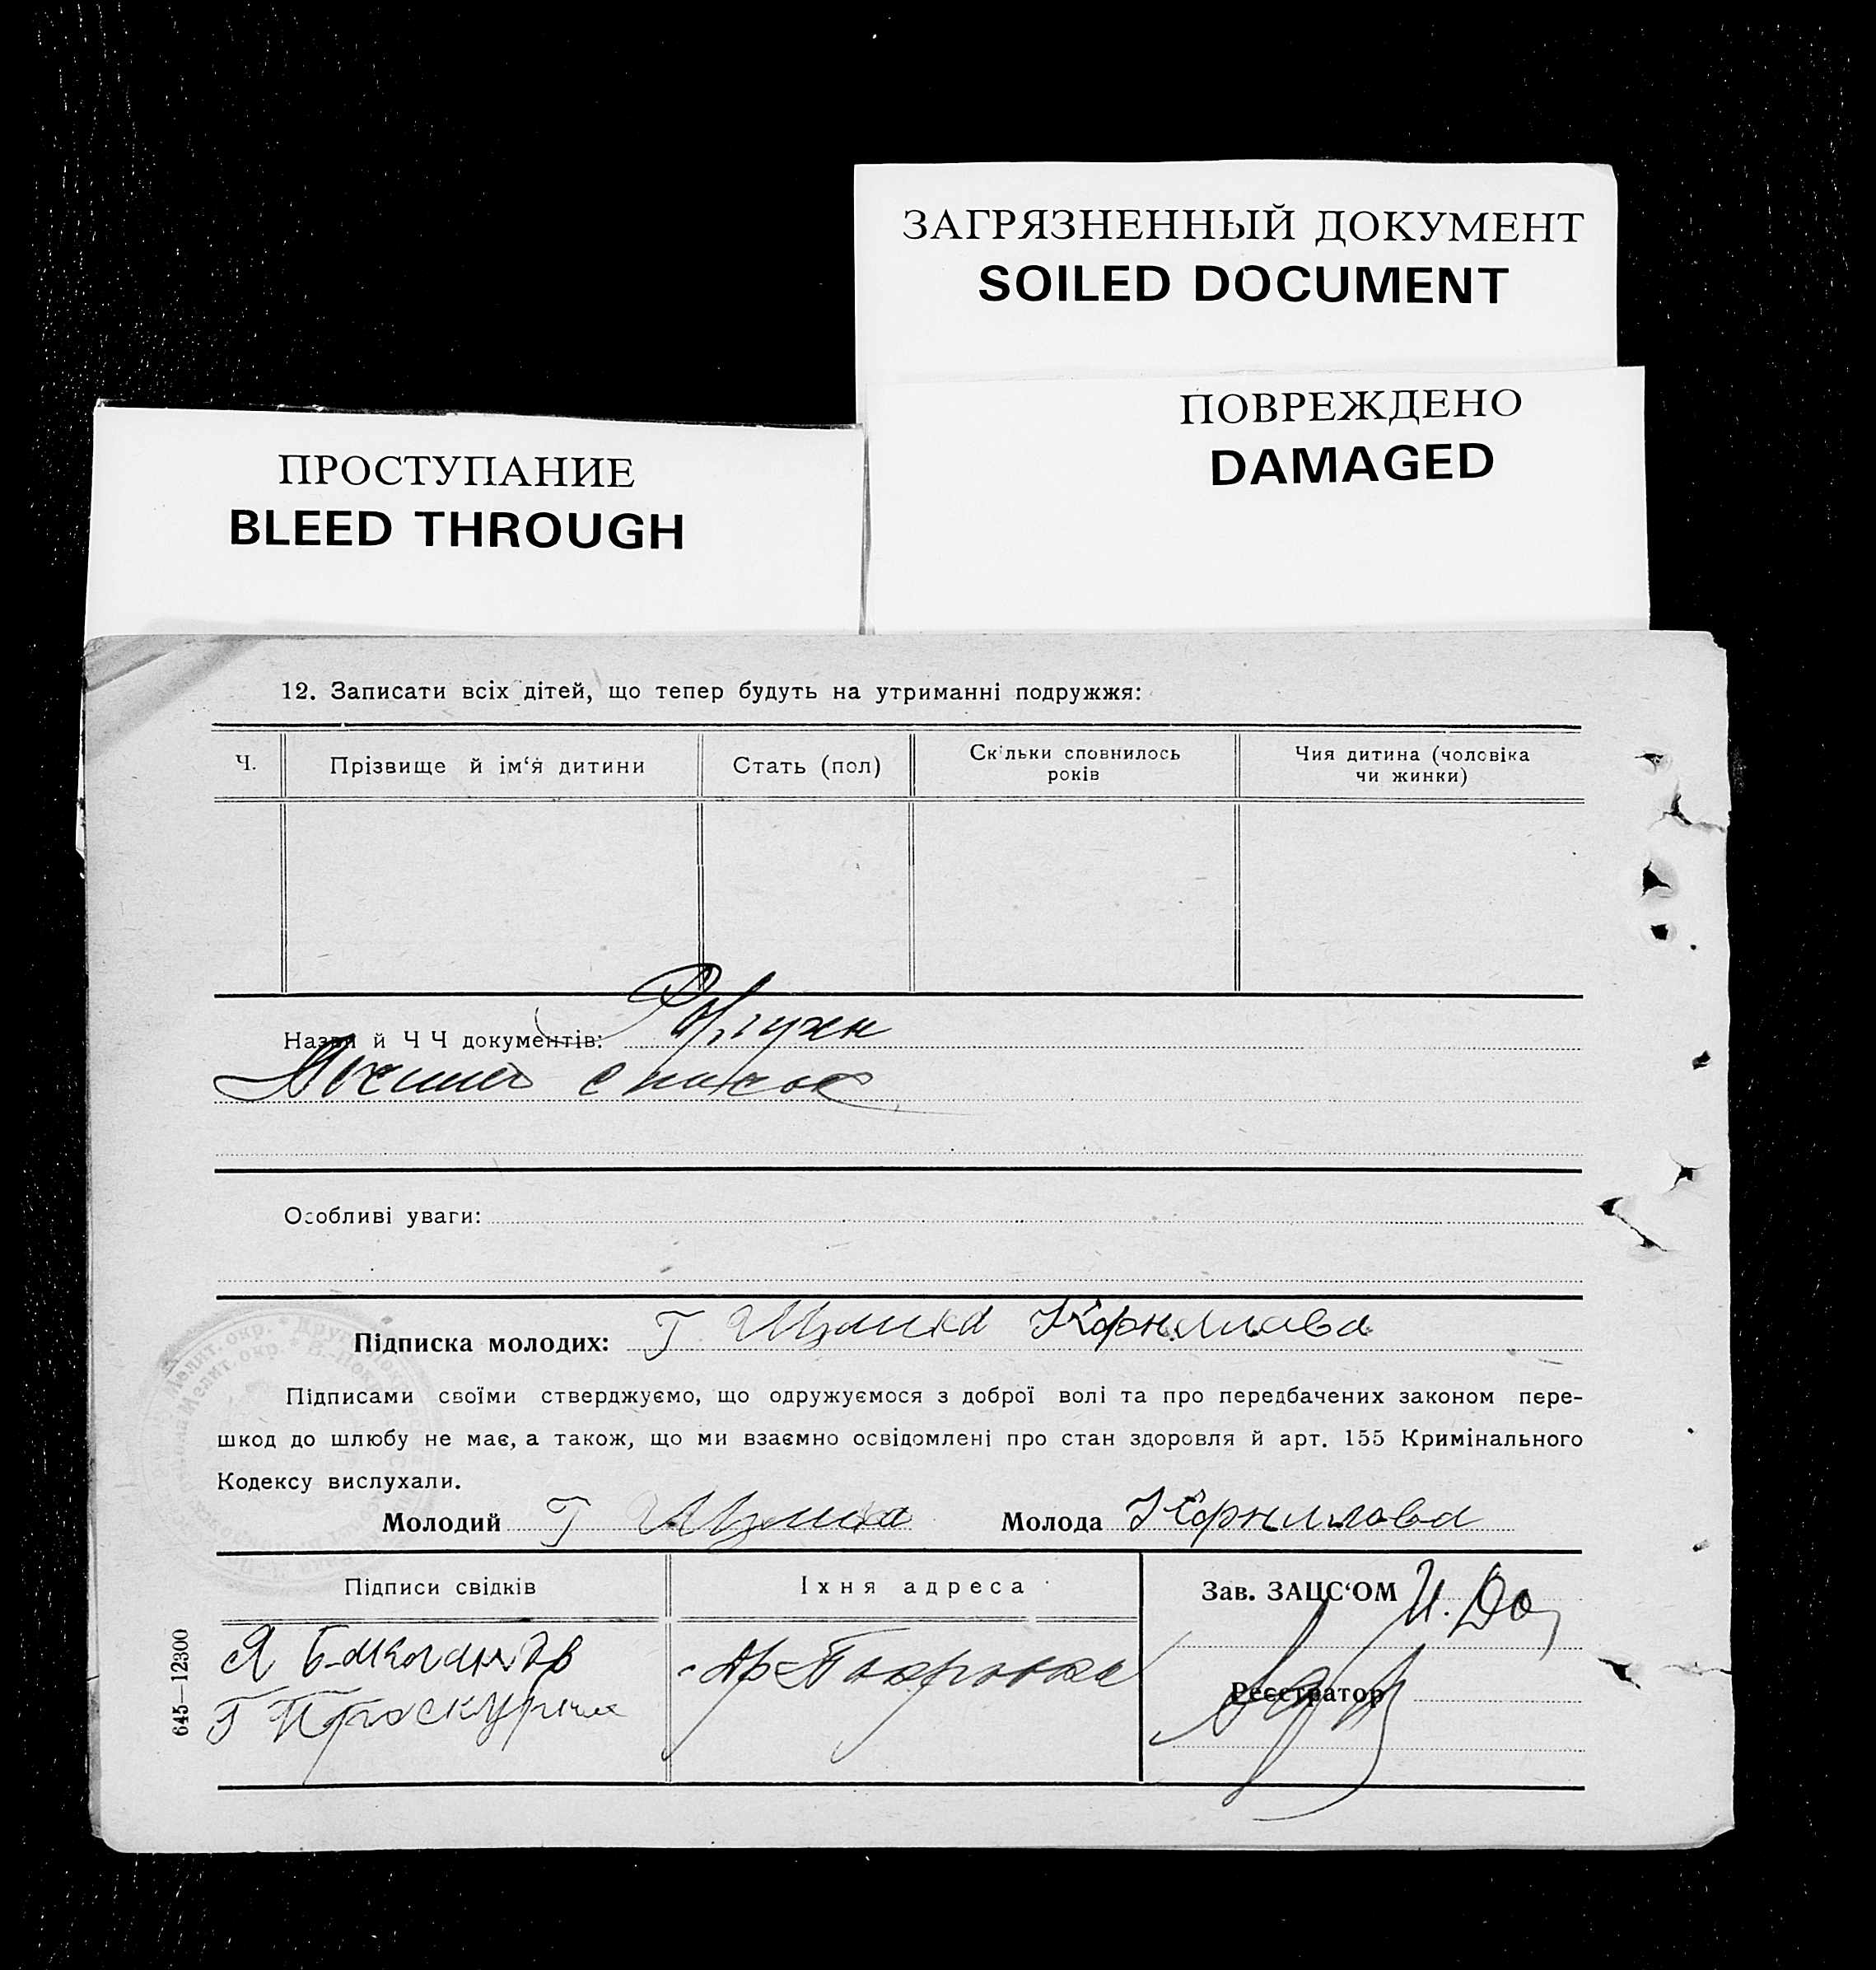 ЗАГРЯЗНЕННЫЙ ДОКУМЕНТ
SOILED DOCUMENT
ПОВРЕЖДЕНО
DAMAGED
ПРОСТУПАНИЕ
BLEED THROUGH
12. Записати всіх дітей, що тепер будуть на утриманні подружжя:
Ч.
Прізвище й ім‘я дитини
Стать (пол)
Скільки сповнилось
років
Чия дитина (чоловіка
чи жинки)
Назви й Ч Ч документів:
список
Особливі уваги:
Підписка молодих: Г Корнилова
Підписами своїми стверджуємо, що одружуємося з доброї волі та про передбачених законом пере-
шкод до шлюбу не має, а також, що ми взаємно освідомлені про стан здоровля й арт. 155 Кримінального
Кодексу вислухали.
Молодий Г
Молода Корнилова
Підписи свідків
Їхня адреса
Зав. ЗАЦС‘ОМ
Я
Г Проскурин
Покровка
Реєстратор
645—12300